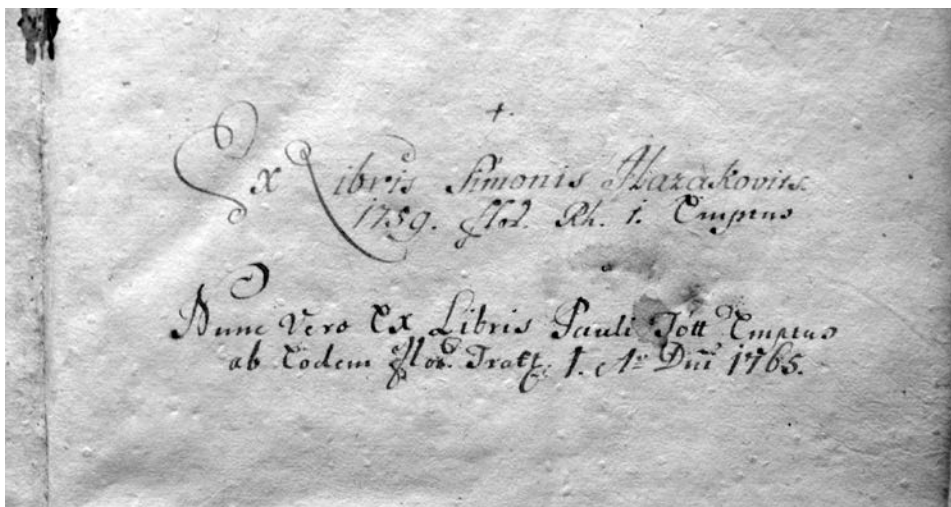 +.
Ex Libris Simonis Hazakovits.
1759. flor. Rh. 1. Emptus
Nunc Vero Ex Libris Pauli Tott Emptus
ab Eodem flor. 1. Dni 1765.